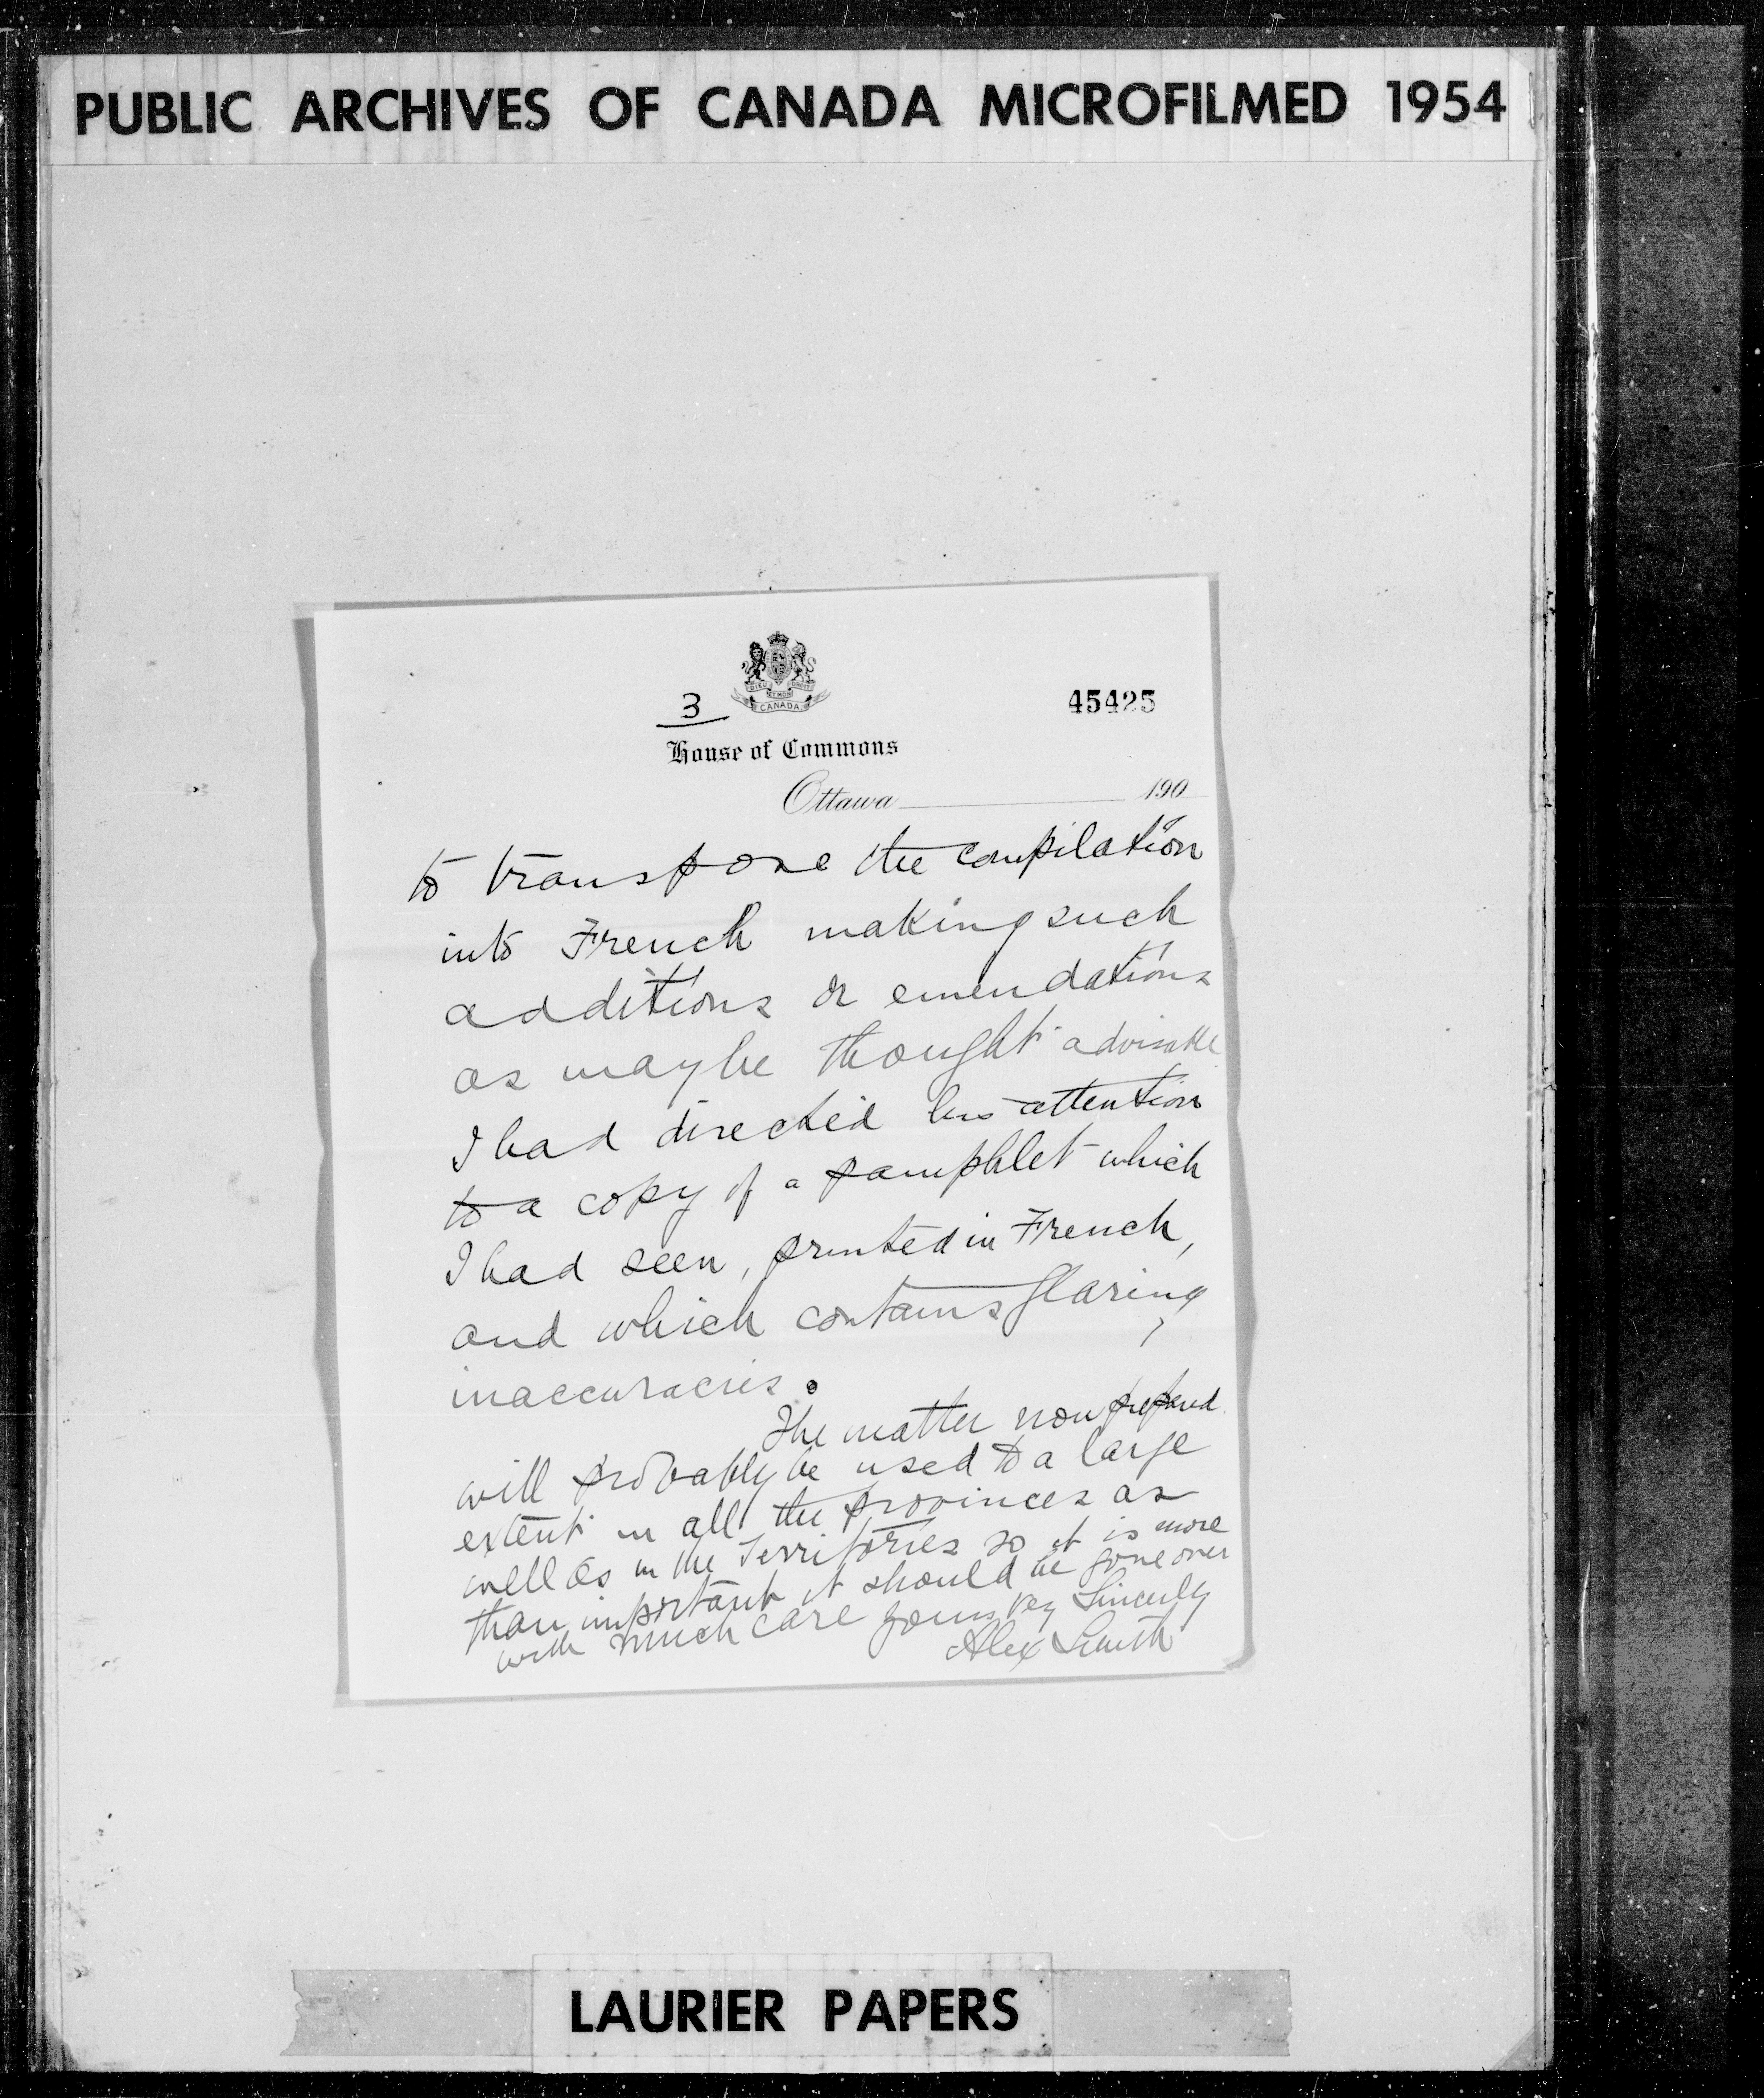 PUBLIC ARCHIVES OF CANADA MICROFILMED 1954
DIEU ET MON DROIT
CANADA
3
45425
House of Commons
Ottawa 190
to transpose the compilation
into French making such
additions or emendations
as may be thought advisable
I had directed his attention
to a copy of a pamphlet which
I had seen, printed in French,
and which contains glaring
inaccuracies.
The matter now prepared
will probably be used to a large
extent in all the provinces as
well as in the Territories so it is more
than important it should be gone over
with much care yours very Sincerely
Alex Smith
LAURIER PAPERS